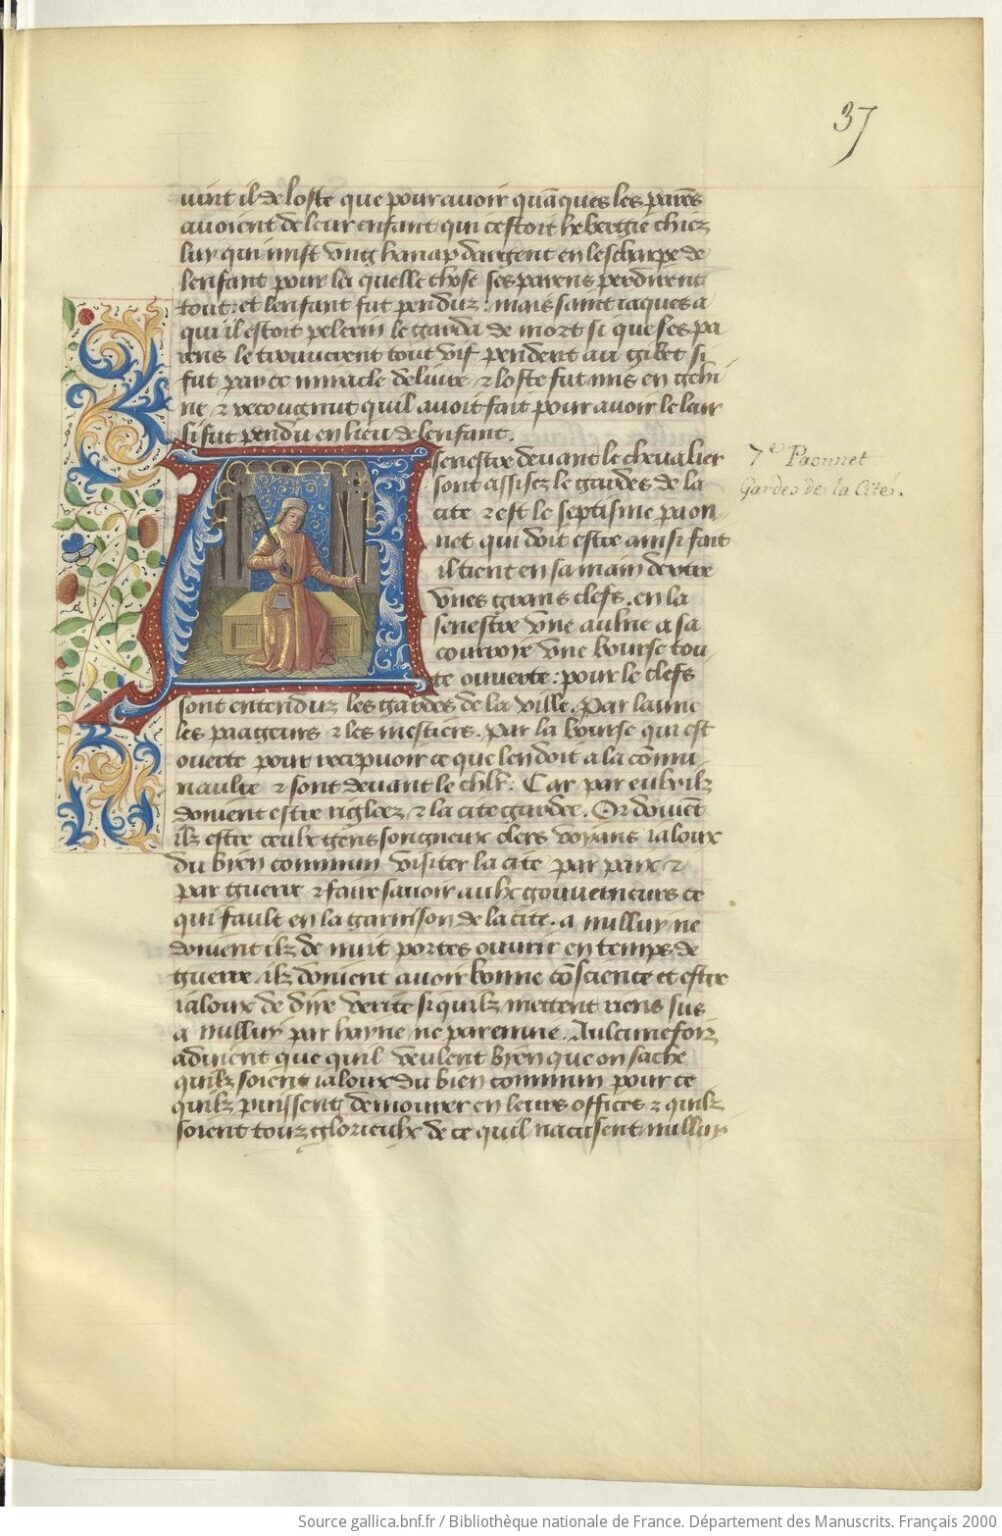 37
vint il de loste que pour avoir quāques les parēs
avoient de leur enfant qui cestoit hebergie chiez
luy qui mist vng hanap dargent en lescharpe de
lenfant pour la quelle chose ses parens perdirent
tout: et lenfant fut penduz: mais saint iaques a
qui il estoit pelerin le garda de mort si que ses pa
rens le trouuerent tout vif pendent au gibet si
fut par ce miracle deliure ⁊ loste fut mis en gehi
ne ⁊ recougnut quil avoit fait pour avoir le leur
si fut pendu en lieu de lenfant.
A senestre deuant le cheualier
sont assisez le gardes de la
cite ⁊ est le septisme paon
net qui doit estre ainsi fait
il tient en sa main dextre
vnes grans clefs. en la
senestre vne aulne a sa
courroye vne bourse tou
te ouuerte: pour le clefs
sont entenduz les gardes de la ville. Par laune
les paageurs ⁊ les mestiers. par la bourse qui est
ouuerte pour recepuoir ce que len doit a la cōmu
naulte ⁊ sont deuant le chlr̄. Car par eulx ilz
doiuent estre riglees ⁊ la cite gardee. Or doiuēt
ilz estre ceulx gens songneux clers voyans ialoux
du bien commun visiter la cite par paix ⁊
par guerre ⁊ faire sauoir aulx gouuerneurs ce
qui fault en la garnison de la cite. a nulluy ne
doiuent ilz de nuit portes ouurir en temps de
guerre. ilz doiuent auoir bonne cōscience et estre
ialoux de dire verite si quilz mettent riens sus
a nulluy par hayne ne par enuie. Aulcunefoiz
aduient que quil veulent bien que on sache
quilz soient ialoux du bien commun pour ce
quilz puissent demourer en leurs offices ⁊ quilz
soient touz glorieulx de ce quil nacusent nulluy
7e Paonnet
Gardes de la Cité.
Source gallica.bnf.fr / Bibliothèque nationale de France. Département des Manuscrits. Français 2000